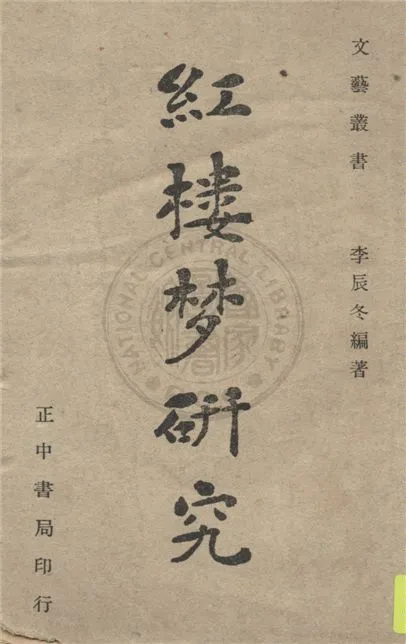 文藝叢書 李辰冬編著
紅楼梦研究
正中書局印行
NATIONAL CENTRAL LIBRARY